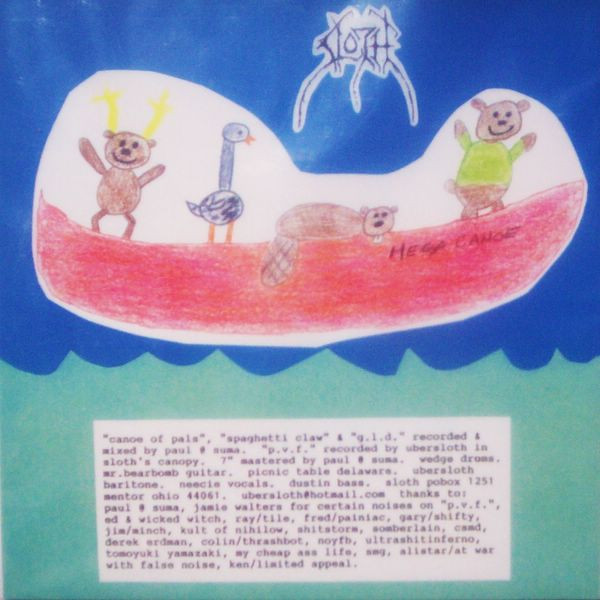 SLOTH
MEGA CANOE
"canoe of pals", "spaghetti claw" & "g.l.d." recorded &
mixed by paul @ suma. "p.v.f." recorded by ubersloth in
sloth's canopy. 7" mastered by paul @ suma. wedge drums.
mr.bearbomb guitar. picnic table delaware. ubersloth
baritone. neecie vocals. dustin bass. sloth pobox 1251
mentor ohio 44061. ubersloth@hotmail.com thanks to:
paul @ suma, jamie walters for certain noises on "p.v.f.",
ed & wicked witch, ray/tile, fred/painiac, gary/shifty,
jim/minch, kult of nihilow, shitstorm, somberlain, csmd,
derek erdman, colin/thrashbot, noyfb, ultrashitinferno,
tomoyuki yamazaki, my cheap ass life, smg, alistar/at war
with false noise, ken/limited appeal.